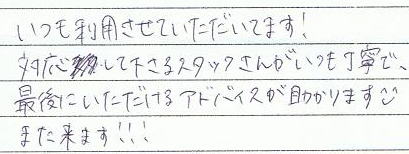 いつも利用させていただいてます!
対応して下さるスタッフさんがいつも丁寧で、
最後にいただけるアドバイスが助かります
また来ます!!!